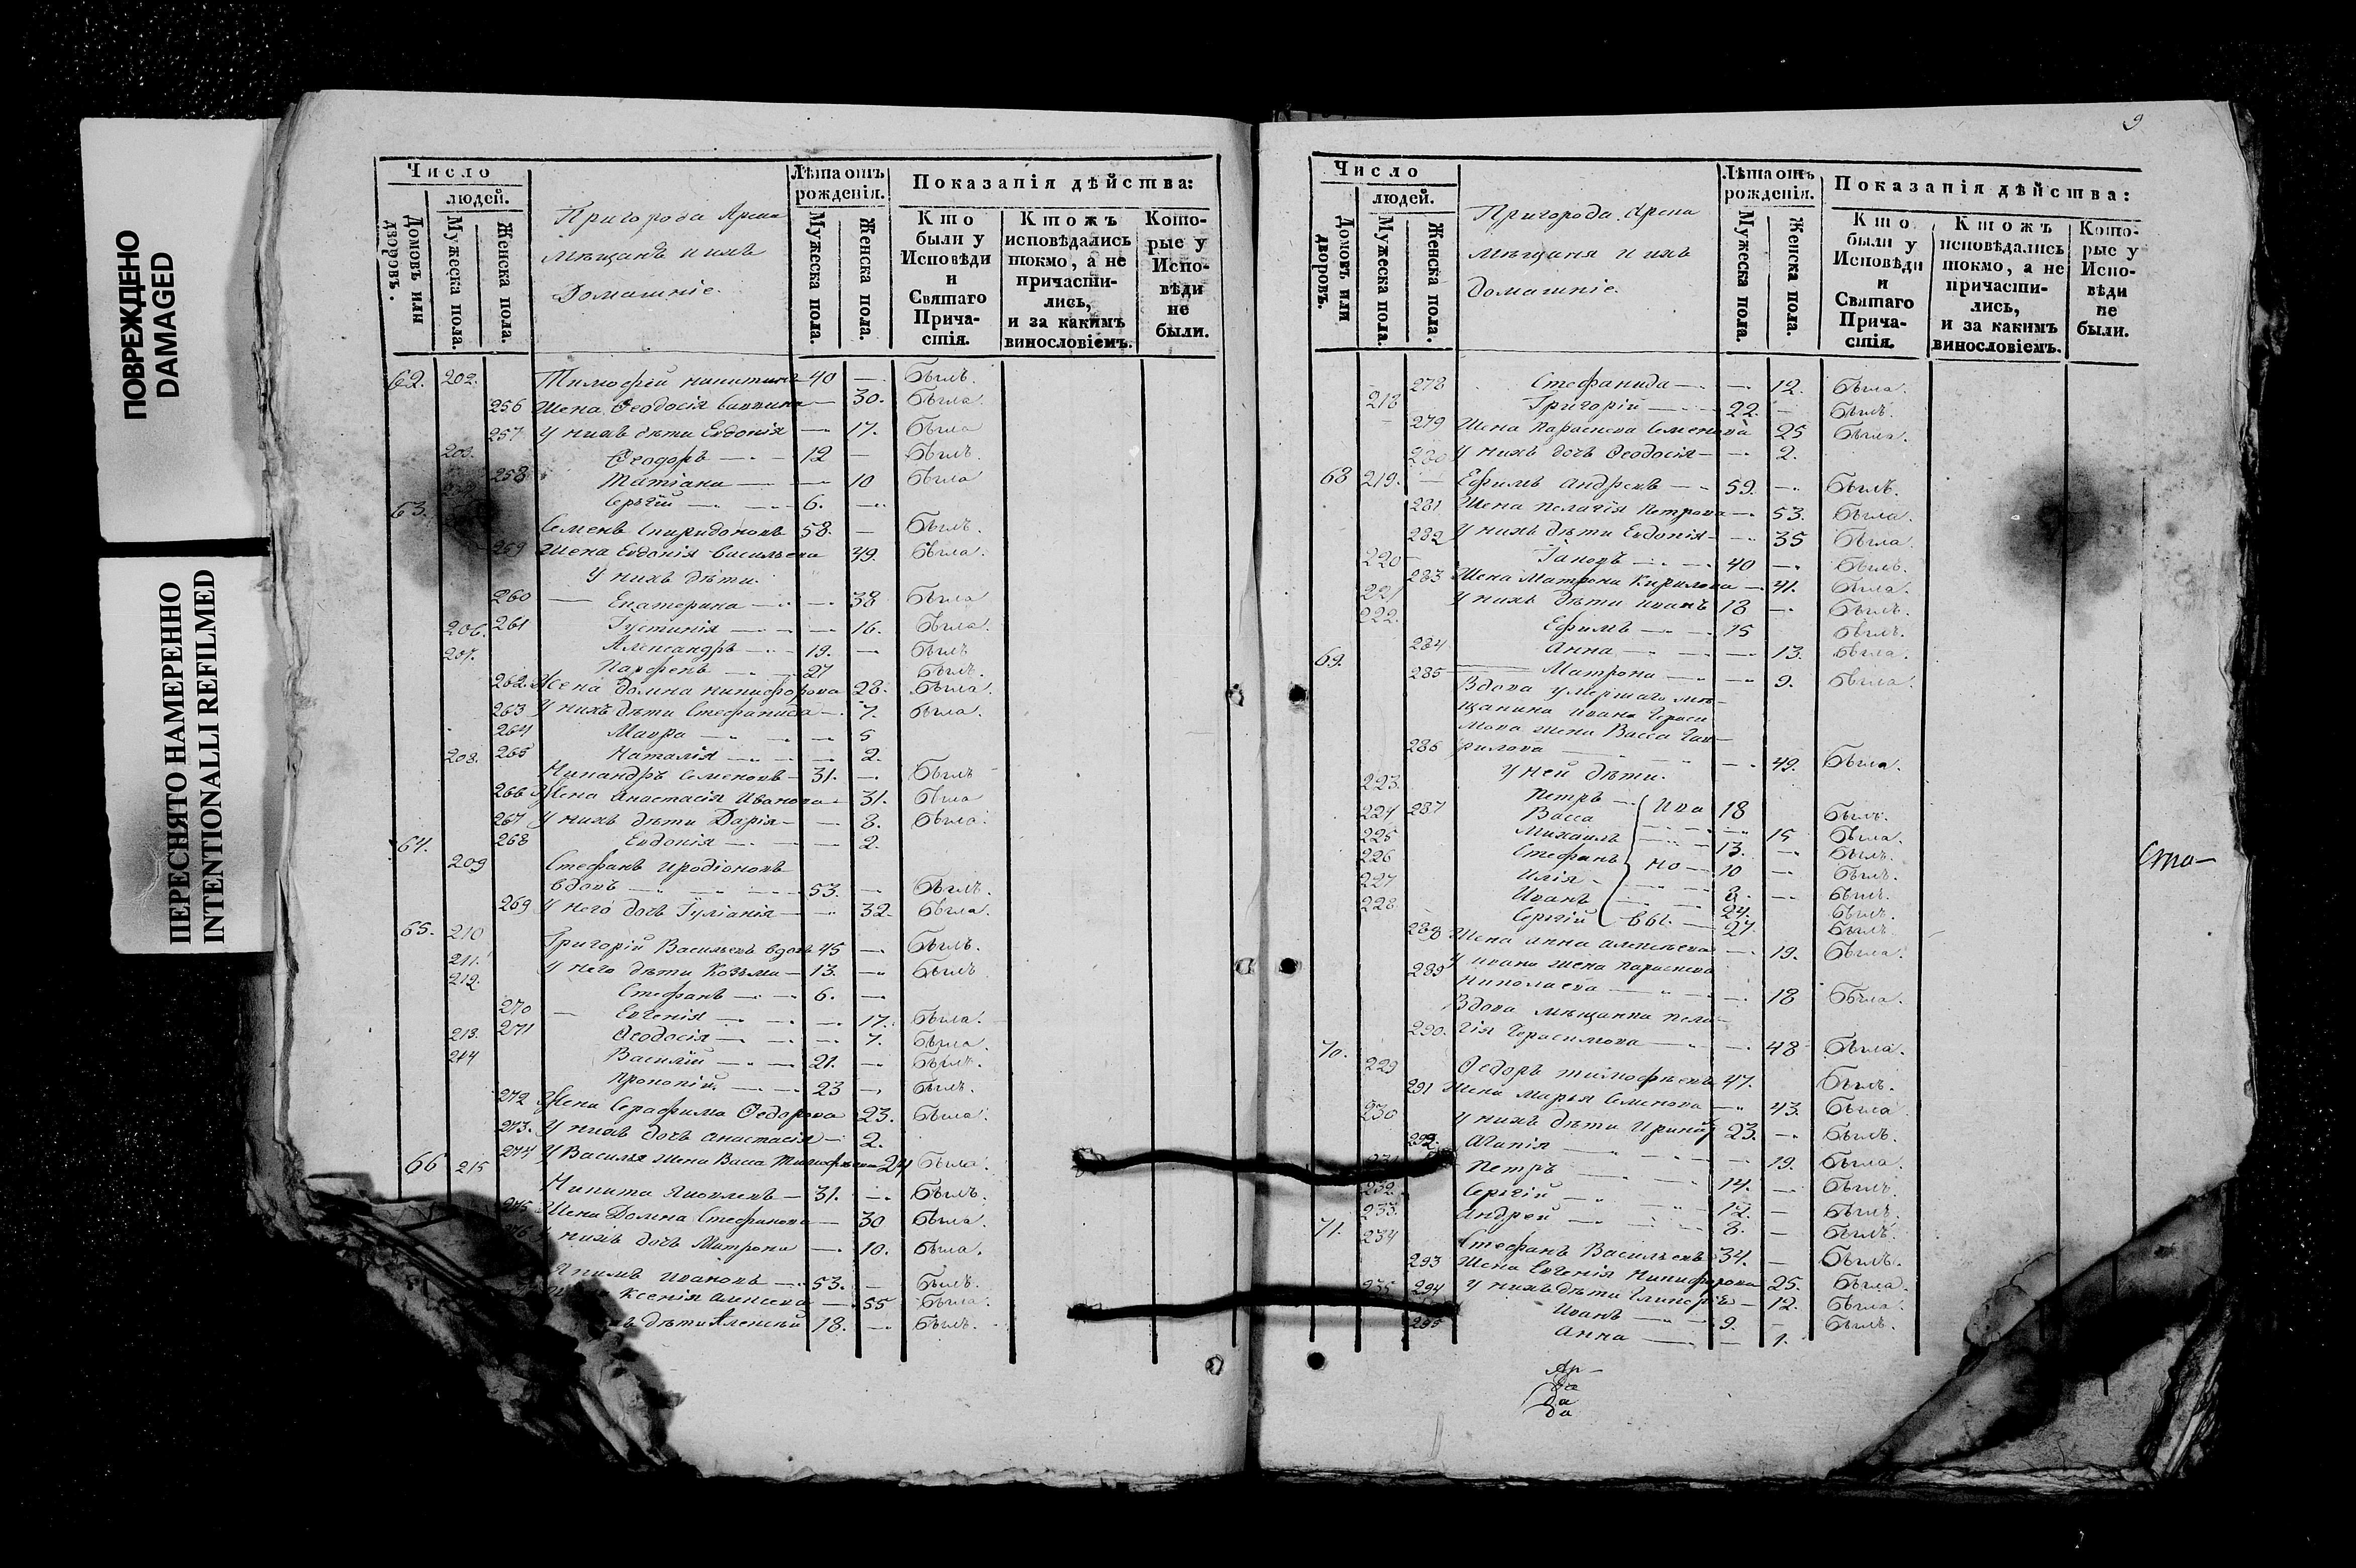 ПОВРЕЖДЕНО
DAMAGED
ПЕРЕСНЯТО НАМЕРЕННО
INTENTIONALLI REFILMED
Число
людей.
Домовъ или дворовъ.
Мужеска пола.
Женска пола.
Пригорода Арска
мѣщанѣ и ихъ
Домашніе.
Лѣта отъ рожденія.
Мужеска пола.
Женска пола.
Показанія дѣйства:
Кто были у Исповѣди и Святаго Причастія.
Ктожъ исповѣдались токмо, а не причастились, и за какимъ винословіемъ.
Которые у Исповѣди не были.
62. 202. Тимофей Никитинъ 40 — былъ.
256 Жена Ѳеодосія 30. была.
257 У нихъ дѣти Евдокія — 17. была
203. Ѳеодоръ — 12 — былъ.
258 Татіана — 10 была
Сергій — 6. —
63. Семенъ Спиридоновъ 58. — былъ.
259 Жена Евдокія Васильева 49. была.
У нихъ дѣти.
260 — Екатерина — 38 была
261 Іустинія — 16. была.
206. Александръ — 19. — былъ
207. Парфенъ — 27 былъ.
262. Жена Домна Никифорова 28. была.
263 У нихъ дѣти Стефанида — 7. была.
264 Мавра — 5
265 Наталія — 2.
208. Никандръ Семеновъ — 31. — былъ
266 Жена Анастасія Иванова 31. была
267 У нихъ дѣти Дарія — 8. была.
268 Евдокія — 2.
64. 209 Стефанъ Иродіоновъ
вдовъ — 53. — былъ.
269 У него дочь Іуліанія — 32. была.
65. 210 Григорій Васильевъ вдовъ 45 — былъ.
211. У него дѣти Козьма — 13. — былъ
212. Стефанъ — 6. —
270 — Евгенія — 17. была.
271 Ѳеодосія — 7. была.
213. Василій — 21. — былъ.
214 Прокопій — 23 — былъ.
272 Жена Серафима Ѳедорова 23. была.
273. У нихъ дочь Анастасія — 2.
274 У Василья жена Васса Тимофеева 24 была.
66 215 Никита Яковлевъ — 31. — былъ.
275 Жена Домна Стефанова — 30 была.
276 нихъ дочь Матрона — 10. была.
Ивановъ — 53. — былъ.
Ксенія Алексеева — 55 была.
дѣти Алексѣй 18. — былъ.
9
Число
людей.
Домовъ или дворовъ.
Мужеска пола.
Женска пола.
Пригорода Арска
мѣщаня и ихъ
домашніе.
Лѣта отъ рожденія.
Мужеска пола.
Женска пола.
Показанія дѣйства:
Кто были у Исповѣди и Святаго Причастія.
Ктожъ исповѣдались токмо, а не причастились, и за какимъ винословіемъ.
Которые у Исповѣди не были.
278 Стефанида — 12. была.
218 Григорій — 22. — былъ.
279 Жена Параскева Семенова 25 была.
280 У нихъ дочь Ѳеодосія — 2.
68 219. Ефимъ Андреевъ — 59. — былъ.
281 Жена Пелагія Петрова — 53. была.
282 У нихъ дѣти Евдокія — 35 была.
220 Іаковъ — 40 — былъ.
283 Жена Матрона Кирилова — 41. была.
221 У нихъ дѣти Иванъ 18 — былъ.
222. Ефимъ — 15 былъ.
284 Анна — 13. была.
285 Матрона — 9. была.
69. Вдова умершаго мѣ-
щанина Ивана Гераси-
мова жена Васса Гав-
286 рилова — 42. была.
У ней дѣти.
223. Петръ — Ива 18 былъ.
287 Васса — 15 была.
224 Михаилъ — 13. — былъ.
225 Стефанъ — но — 10 — былъ.
226 Илія — 8. — былъ.
227 Иванъ — 24. былъ.
228 Сергій — вы. — 27. былъ.
288 Жена Анна Алексѣева — 19. была.
У Ивана жена Параскева
289 Николаева — 18 была.
Вдова мѣщанка Пела-
290. гія Герасимова — 48 была.
70. 229 Ѳедоръ Тимофѣевъ 47. былъ.
291 Жена Марья Семенова — 43. была
230 У нихъ дѣти 23. — былъ.
292. Агапія — 19. была.
231 Петръ — 14. — былъ.
232 Сергій — 12. — былъ.
233. Андрей — 8. — былъ.
71. 234 Стефанъ Васильевъ 34. — былъ.
293 Жена Евгенія Никифорова 25. была.
294 У нихъ дѣти Гликерія — 12. была.
235 Иванъ — 9. — былъ.
295 Анна — 1.
Ста—